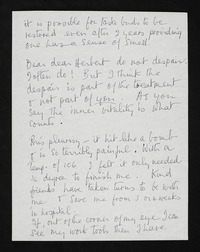 it is possible for taste buds to be
restored even after 2 years providing
one has a sense of smell.
Dear dear Herbert do not despair.
I often do! But I think the
despair is part of the treatment
& not part of you. As you
say the inner vitality is what
counts.
This pleurisy – it hit like a bomb
& is so terribly painful. With a
temp. of 106 I felt it only needed
degree to finish me. Kind
friends have taken turns to be with
me & save me from 3 or weeks
in hospital.
If, out of the corner of my eye I can
see my work tools then I have